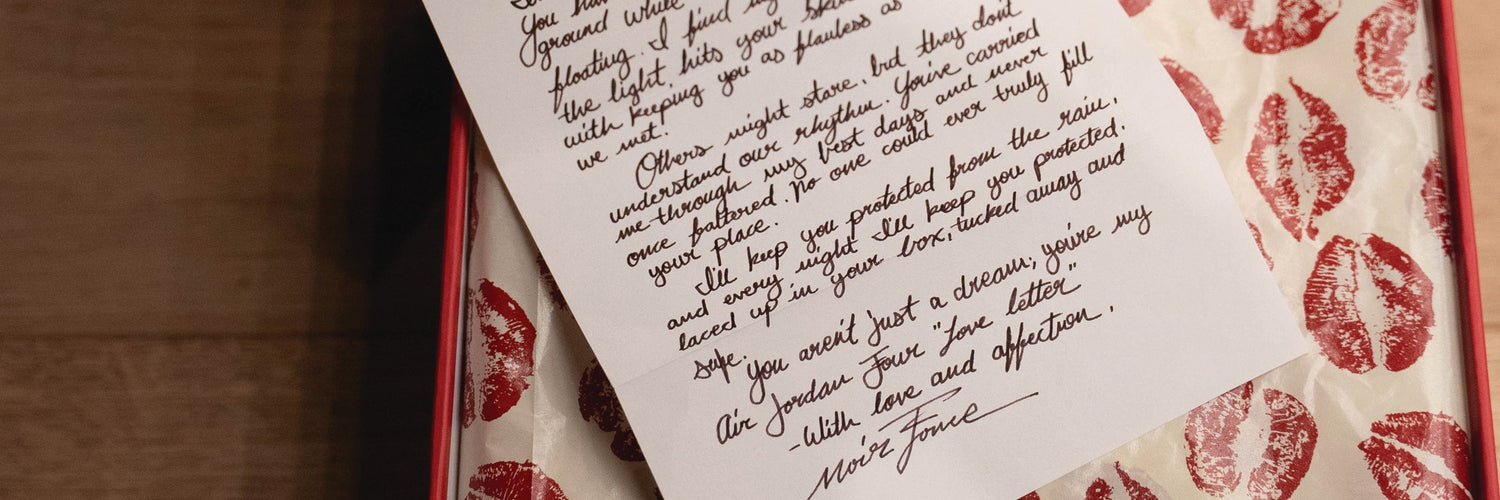 You hav
ground while
floating. I find my
the light hits your skin
with keeping you as flawless as
we met.
Others might stare, but they don't
understand our rhythm. You've carried
me through my best days and never
once faltered. No one could ever truly fill
your place.
I'll keep you protected from the rain,
and every night I'll keep you protected.
laced up in your box, tucked away and
safe.
You aren't just a dream; you're my
Air Jordan Four "Love letter"
-With love and affection.
Noir Fonce